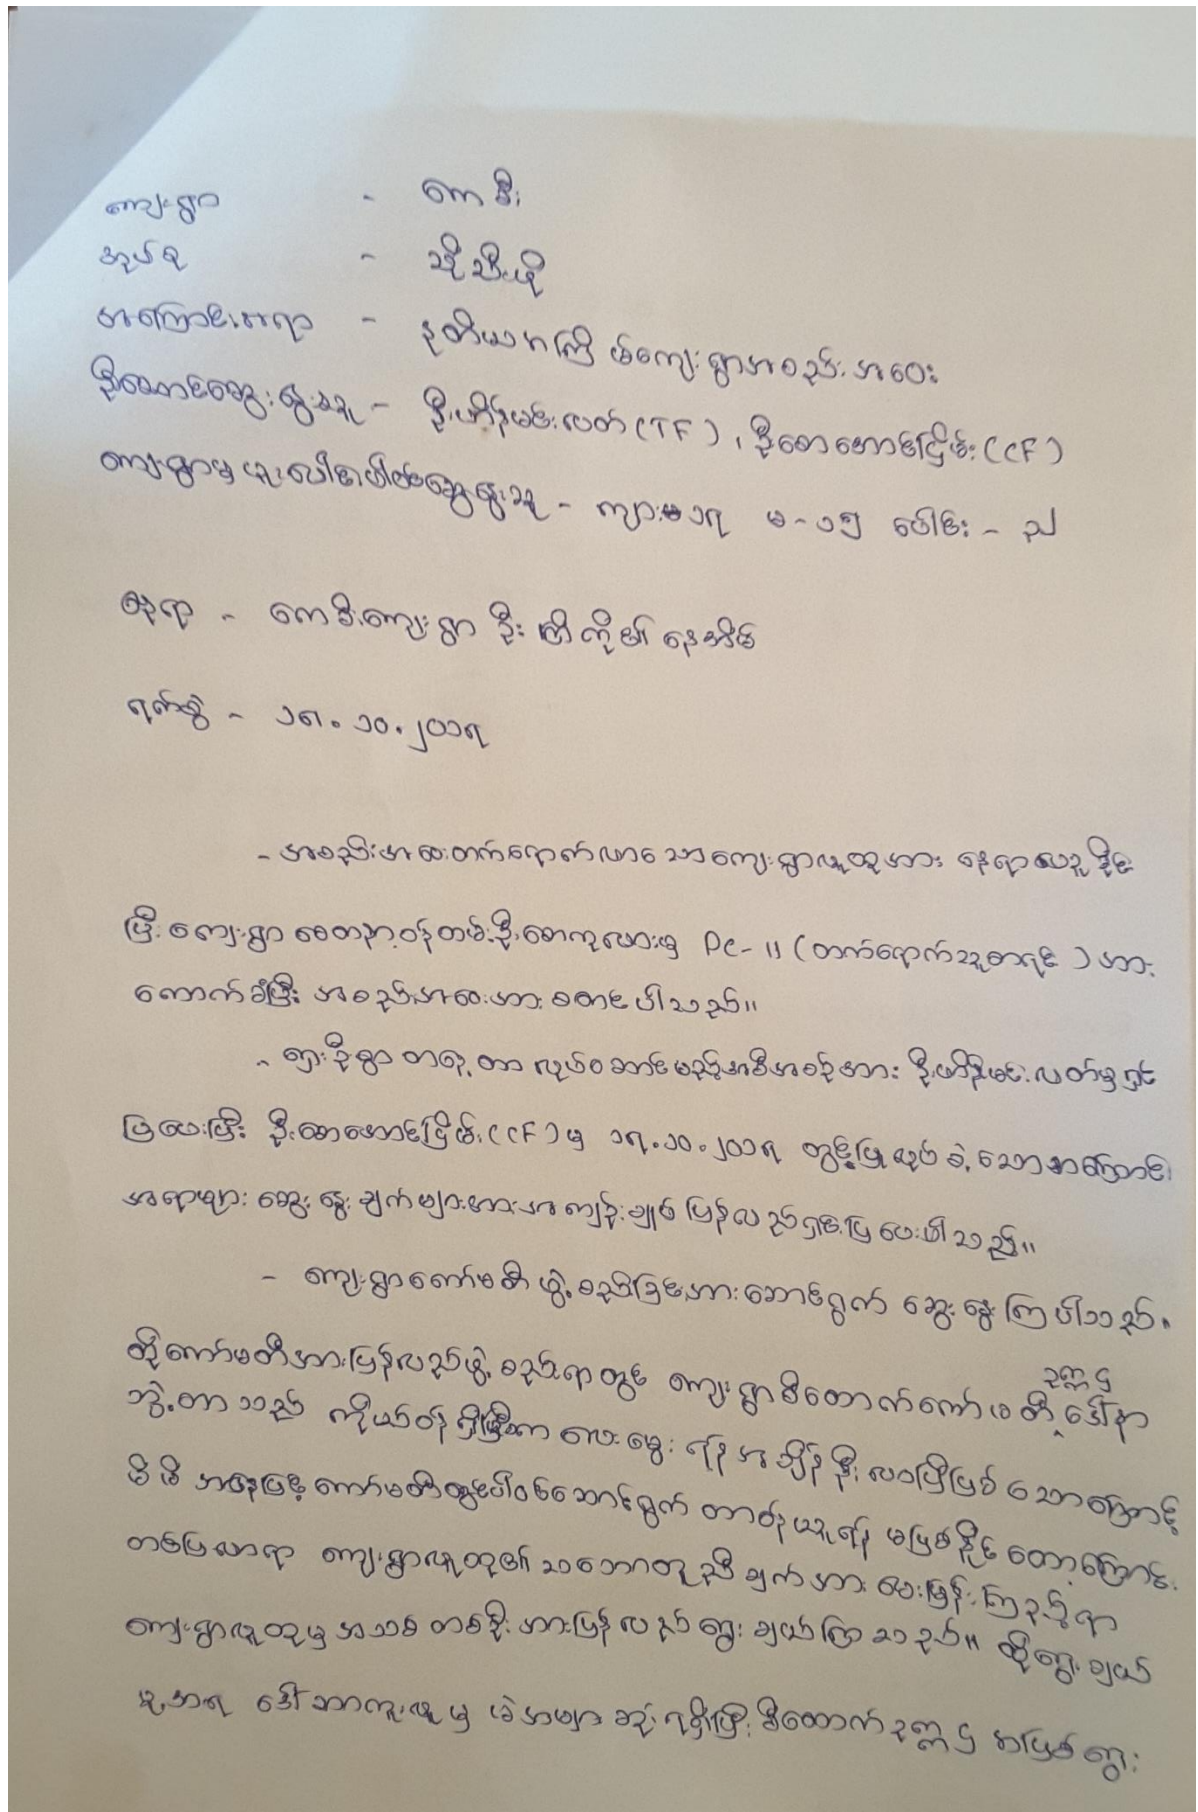 ကျေးရွာ - ကေစီး
အုပ်စု - သိုသီးဖို
အကြောင်းအရာ - ဒုတိယအကြိမ်ကျေးရွာအစည်းအဝေး
ဦးဆောင်ဆွေးနွေးသူ - ဦးဟိန်းမင်းလတ် (TF) ၊ ဦးစောအောင်ငြိမ်း (CF)
ကျေးရွာမှ ပူးပေါင်းပါဝင်ဆွေးနွေးသူ - ကျား ၁၇ မ - ၁၅ ပေါင်း -
နေရာ - ကေစီးကျေးရွာ ဦး ၏ နေအိမ်
ရက်စွဲ - ၁၈.၁၀.၂၀၁၇
- အစည်းအဝေးတက်ရောက်လာသောကျေးရွာလူထုအား နေရာယူခိုင်း
ပြီး ကျေးရွာ စေတနာ့ဝန်ထမ်း ဦးစောကုလားမှ PC-11 (တက်ရောက်သူစာရင်း) အား
ကောက်ခံပြီး အစည်းအဝေးအား စတင်ပါသည်။
- ရှားဦးစွာ တနေ့တာ လုပ်ဆောင်မည့်အစီအစဉ်အား ဦးဟိန်းမင်းလတ်မှရှင်း
ပြပေးပြီး ဦးစောအောင်ငြိမ်း (CF) မှ ၁၇.၁၀.၂၀၁၇ တွင်ပြုလုပ်ခဲ့သောအကြောင်း
အရာများ ဆွေးနွေးချက်များအား အကျဉ်းချုပ် ပြန်လည်ရှင်းပြပေးပါသည်။
- ကျေးရွာကော်မတီဖွဲ့စည်းခြင်းအား ဆောင်ရွက် ဆွေးနွေးကြပါသည်။
ထိုကော်မတီအားပြန်လည်ဖွဲ့စည်းရာတွင် ကျေးရွာစီထောက်ကော်မတီ ဥက္ကဋ္ဌ ဒေါ်နာ
ဘွဲ့တာသည် ကိုယ်ဝန်ရှိပြီးကာ မွေးရန် အချိန်နီးလာပြီဖြစ်သောကြောင့်
မိမိ အနေဖြင့် ကော်မတီတွင်ပါဝင်ဆောင်ရွက် တာဝန်ယူရန် မဖြစ်နိုင်တော့ကြောင်း
တင်ပြလာရာ ကျေးရွာလူထု၏ သဘောတူညီချက်အား မေးမြန်းကြည့်ရာ
ကျေးရွာလူထုမှ အသစ်တစ်ဦးအားပြန်လည်ရွေးချယ်ကြသည်။ ထိုရွေးချယ်
မှုအရ ဒေါ်ဘာကူးယူမှ မဲအများဆုံးရရှိပြီး စီထောက်ဥက္ကဋ္ဌ အဖြစ်ရွေး